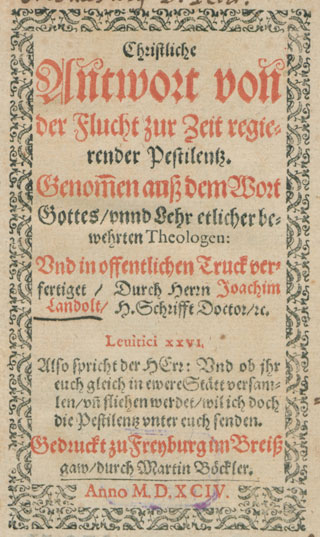 Christliche
Antwort von
der Flucht zur Zeit regie-
render Pestilentz.
Genom̄en auß dem Wort
Gottes/vnnd Lehr etlicher be-
wehrten Theologen:
Vnd in offentlichen Truck ver-
fertiget / Durch Herrn Joachim
Landolt / H. Schrifft Doctor/ꝛc.
Leuitici XXVI.
Also spricht der HErr: Vnd ob jhr
euch gleich in ewere Stätt versam-
len/vn̄ fliehen werdet/wil ich doch
die Pestilentz vnter euch senden.
Gedruckt zu Freyburg im Breiß
gaw/durch Martin Böckler.
Anno M. D. XCIV.